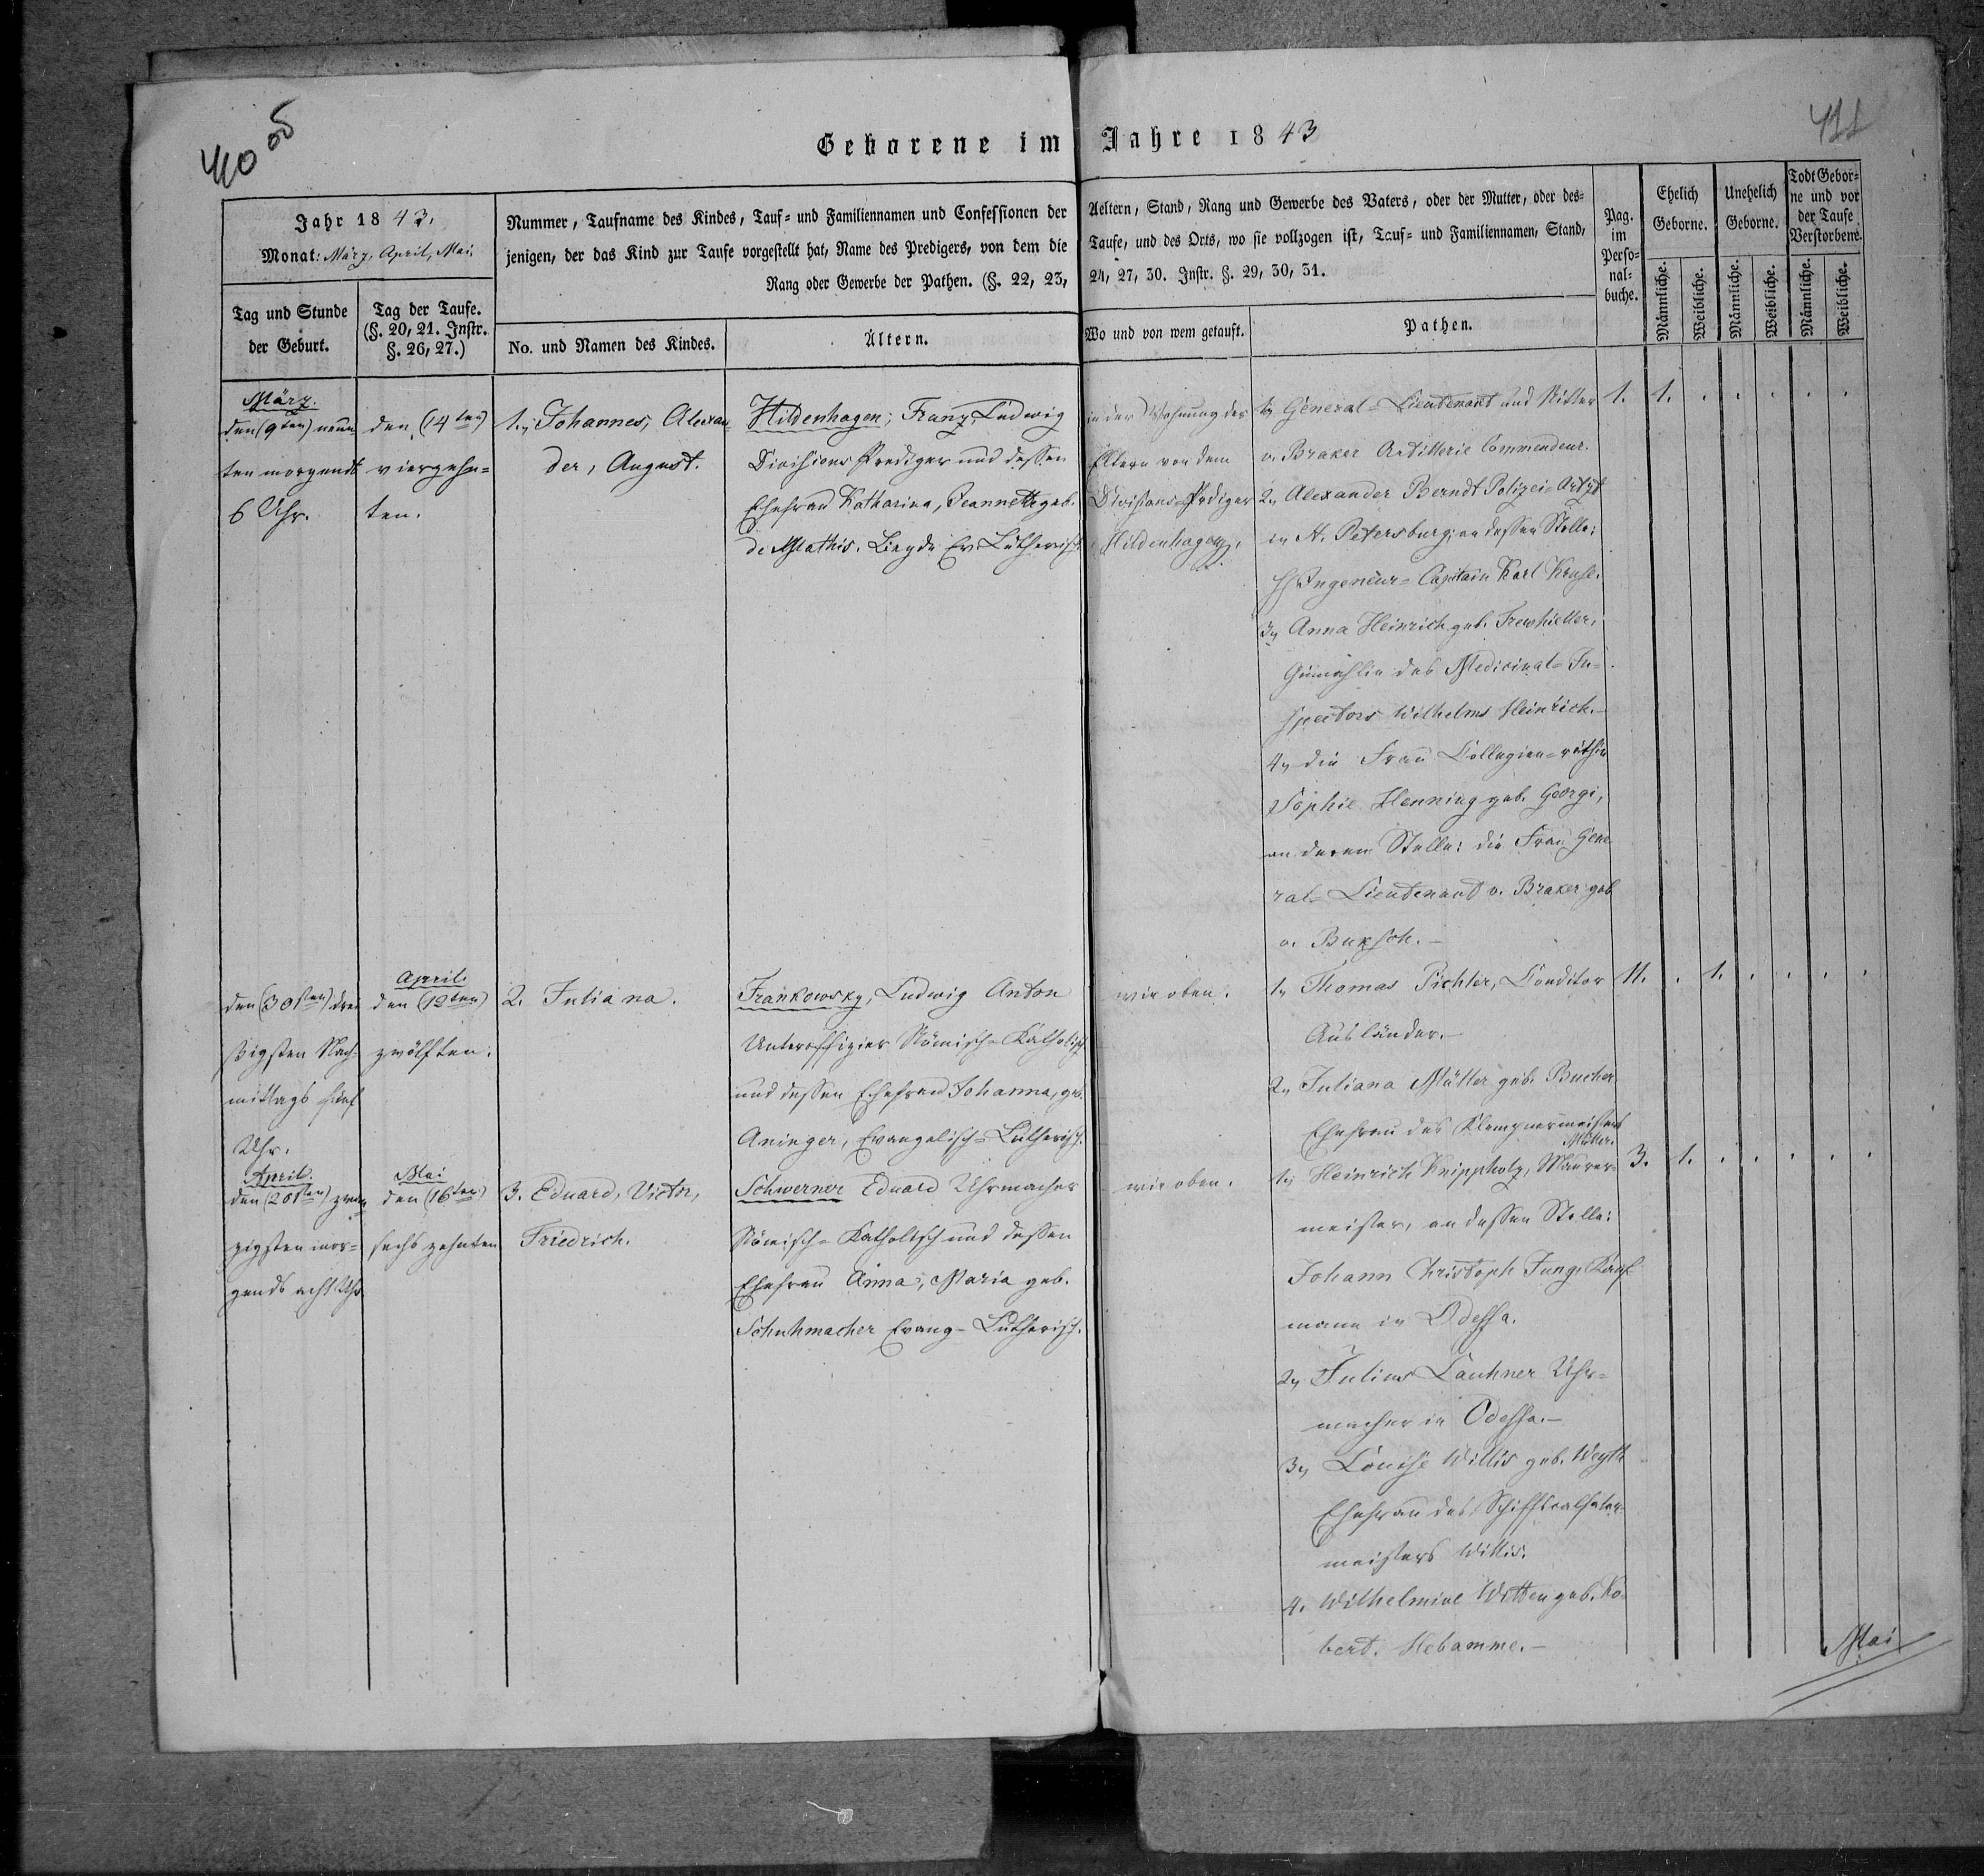 410 об
411
Geborene im Jahre 1843
Jahr 1843.
Monat: März, April, Mai.
Tag und Stunde
der Geburt.
Tag der Taufe.
(§. 20, 21. Instr.
§. 26, 27.)
Nummer, Taufname des Kindes, Tauf- und Familiennamen und Confessionen der Aeltern, Stand, Rang und Gewerbe des Vaters, oder der Mutter, oder des-
jenigen, der das Kind zur Taufe vorgestellt hat, Name des Predigers, von dem die Taufe, und des Orts, wo sie vollzogen ist, Tauf- und Familiennamen, Stand,
Rang oder Gewerbe der Pathen. (§. 22, 23, 24, 27, 30. Instr. §. 29, 30, 31.
No. und Namen des Kindes.
Ältern.
Wo und von wem getauft.
Pathen.
Pag.
im
Perso-
nal-
buche.
Ehelich
Geborne.
Unehelich
Geborne.
Todt Gebor-
ne und vor
der Taufe
Verstorbene.
Männliche.
Weibliche.
Männliche.
Weibliche.
Männliche.
Weibliche.
März.
den (9ten) neun-
ten morgends
6 Uhr.
den (14ten)
vierzehn-
ten.
1., Johannes, Alexan-
der, August.
Hildenhagen, Franz, Ludwig
Divisions Prediger und dessen
Ehefrau Katharina, Jeannette geb.
de Mathis. Beyde Ev. Lutherisch
in der Wohnung der
Eltern von dem
Divisions-Prediger
Hildenhagen.
1, General-Lieutenant und Ritter
v. Braker Artillerie Commendeur.
2, Alexander Berndt Polizei-Artzt
in St. Petersburg; an dessen Stelle:
Ingeneur-Capitain Karl Kruse.
3, Anna Heinrich geb.
Gemahlin des Medicinal-In-
spectors Wilhelms Heinrich.-
4, die Frau Collegien-räthin
Sophie Henning geb. Georgi,
an deren Stelle: die Frau Gene-
ral-Lieutenant v. Braker geb
v.
1. 1. . . . . .
den (30sten) drei-
ßigsten Nach-
mittags fünf
Uhr.
April.
den (12ten)
zwölften.
2. Juliana.
Frankowsky, Ludwig Anton
Unteroffizier Römisch-Katholisch
und dessen Ehefrau Johanna, geb.
Aninger, Evangelisch-Lutherisch.
wie oben.
1, Thomas Pichler, Conditor
Ausländer.-
2, Juliana Müller geb. Bucher
Ehefrau des Klempnermeisters
Müller.
11. . 1. . . . .
April.
den (20sten) zwan-
zigsten mor-
gends acht Uhr
Mai
den (16ten)
sechszehnten
3. Eduard, Victor,
Friedrich.
Schwerner Eduard Uhrmacher
Römisch-Katholisch und dessen
Ehefrau Anna, Maria geb.
Schuhmacher Evang-Lutherisch.
wie oben.
1, Heinrich Knippholz, Maurer-
meister, an dessen Stelle:
Johann Christoph Junge Kauf-
mann in Odessa.
2, Julius Lauhner Uhr-
macher in Odessa.-
3, Louise Willis geb.
Ehefrau des
meisters Willis.
4. Wilhelmine Witten geb. Ko-
bert. Hebamme.-
3. 1. . . . . .
Mai